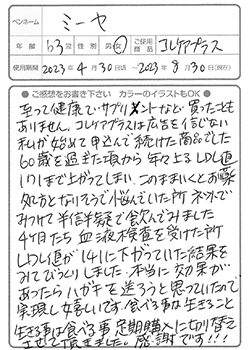 ペンネーム ミーヤ
年齢 63 性別 男・女 ご使用商品 コレケアプラス
使用期間 2023年4月30日〜2023年8月30日(現在)
●ご感想をお書き下さい カラーのイラストもOK●
至って健康で・サプリメントなど買ったことも
ありません。コレケアプラスは広告を信じない
私が始めて申込んで続けた商品でした
60歳を過ぎた頃から年々上るLDL値
171まで上がってしまい、このままいくとお薬
処方となりそうで悩んでいた所ネットで
みつけて半信半疑で飲んでみました
4ヶ月たち血液検査を受けた所
LDL値が141に下がっていた結果を
みてびっくりしました。本当に効果が
あったらハガキを送ろうと思っていたので
実現し嬉しいです。食べる事は生きること
生きる事は食べる事 定期購入に切り替え
させて頂きました。感謝です!!!